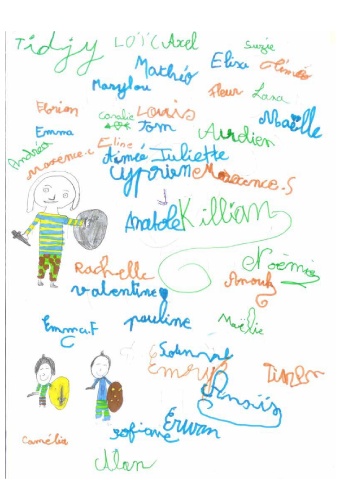 Tidjy Loïc Axel Suzie
Mathéo Elisa
Marylou Fleur Lana
Florian Coralie Louis Maëlle
Emma Tom Aurélien
Andréa Maxence.c Eline
Aimée Juliette
Cyprian Maxence.S
Anatole Killian
Rachelle Noémie
Valentine Anouk
Emma.F pauline Maëlie
Emrys
Anaïs
Camélia Sofiane Erwan
Alan